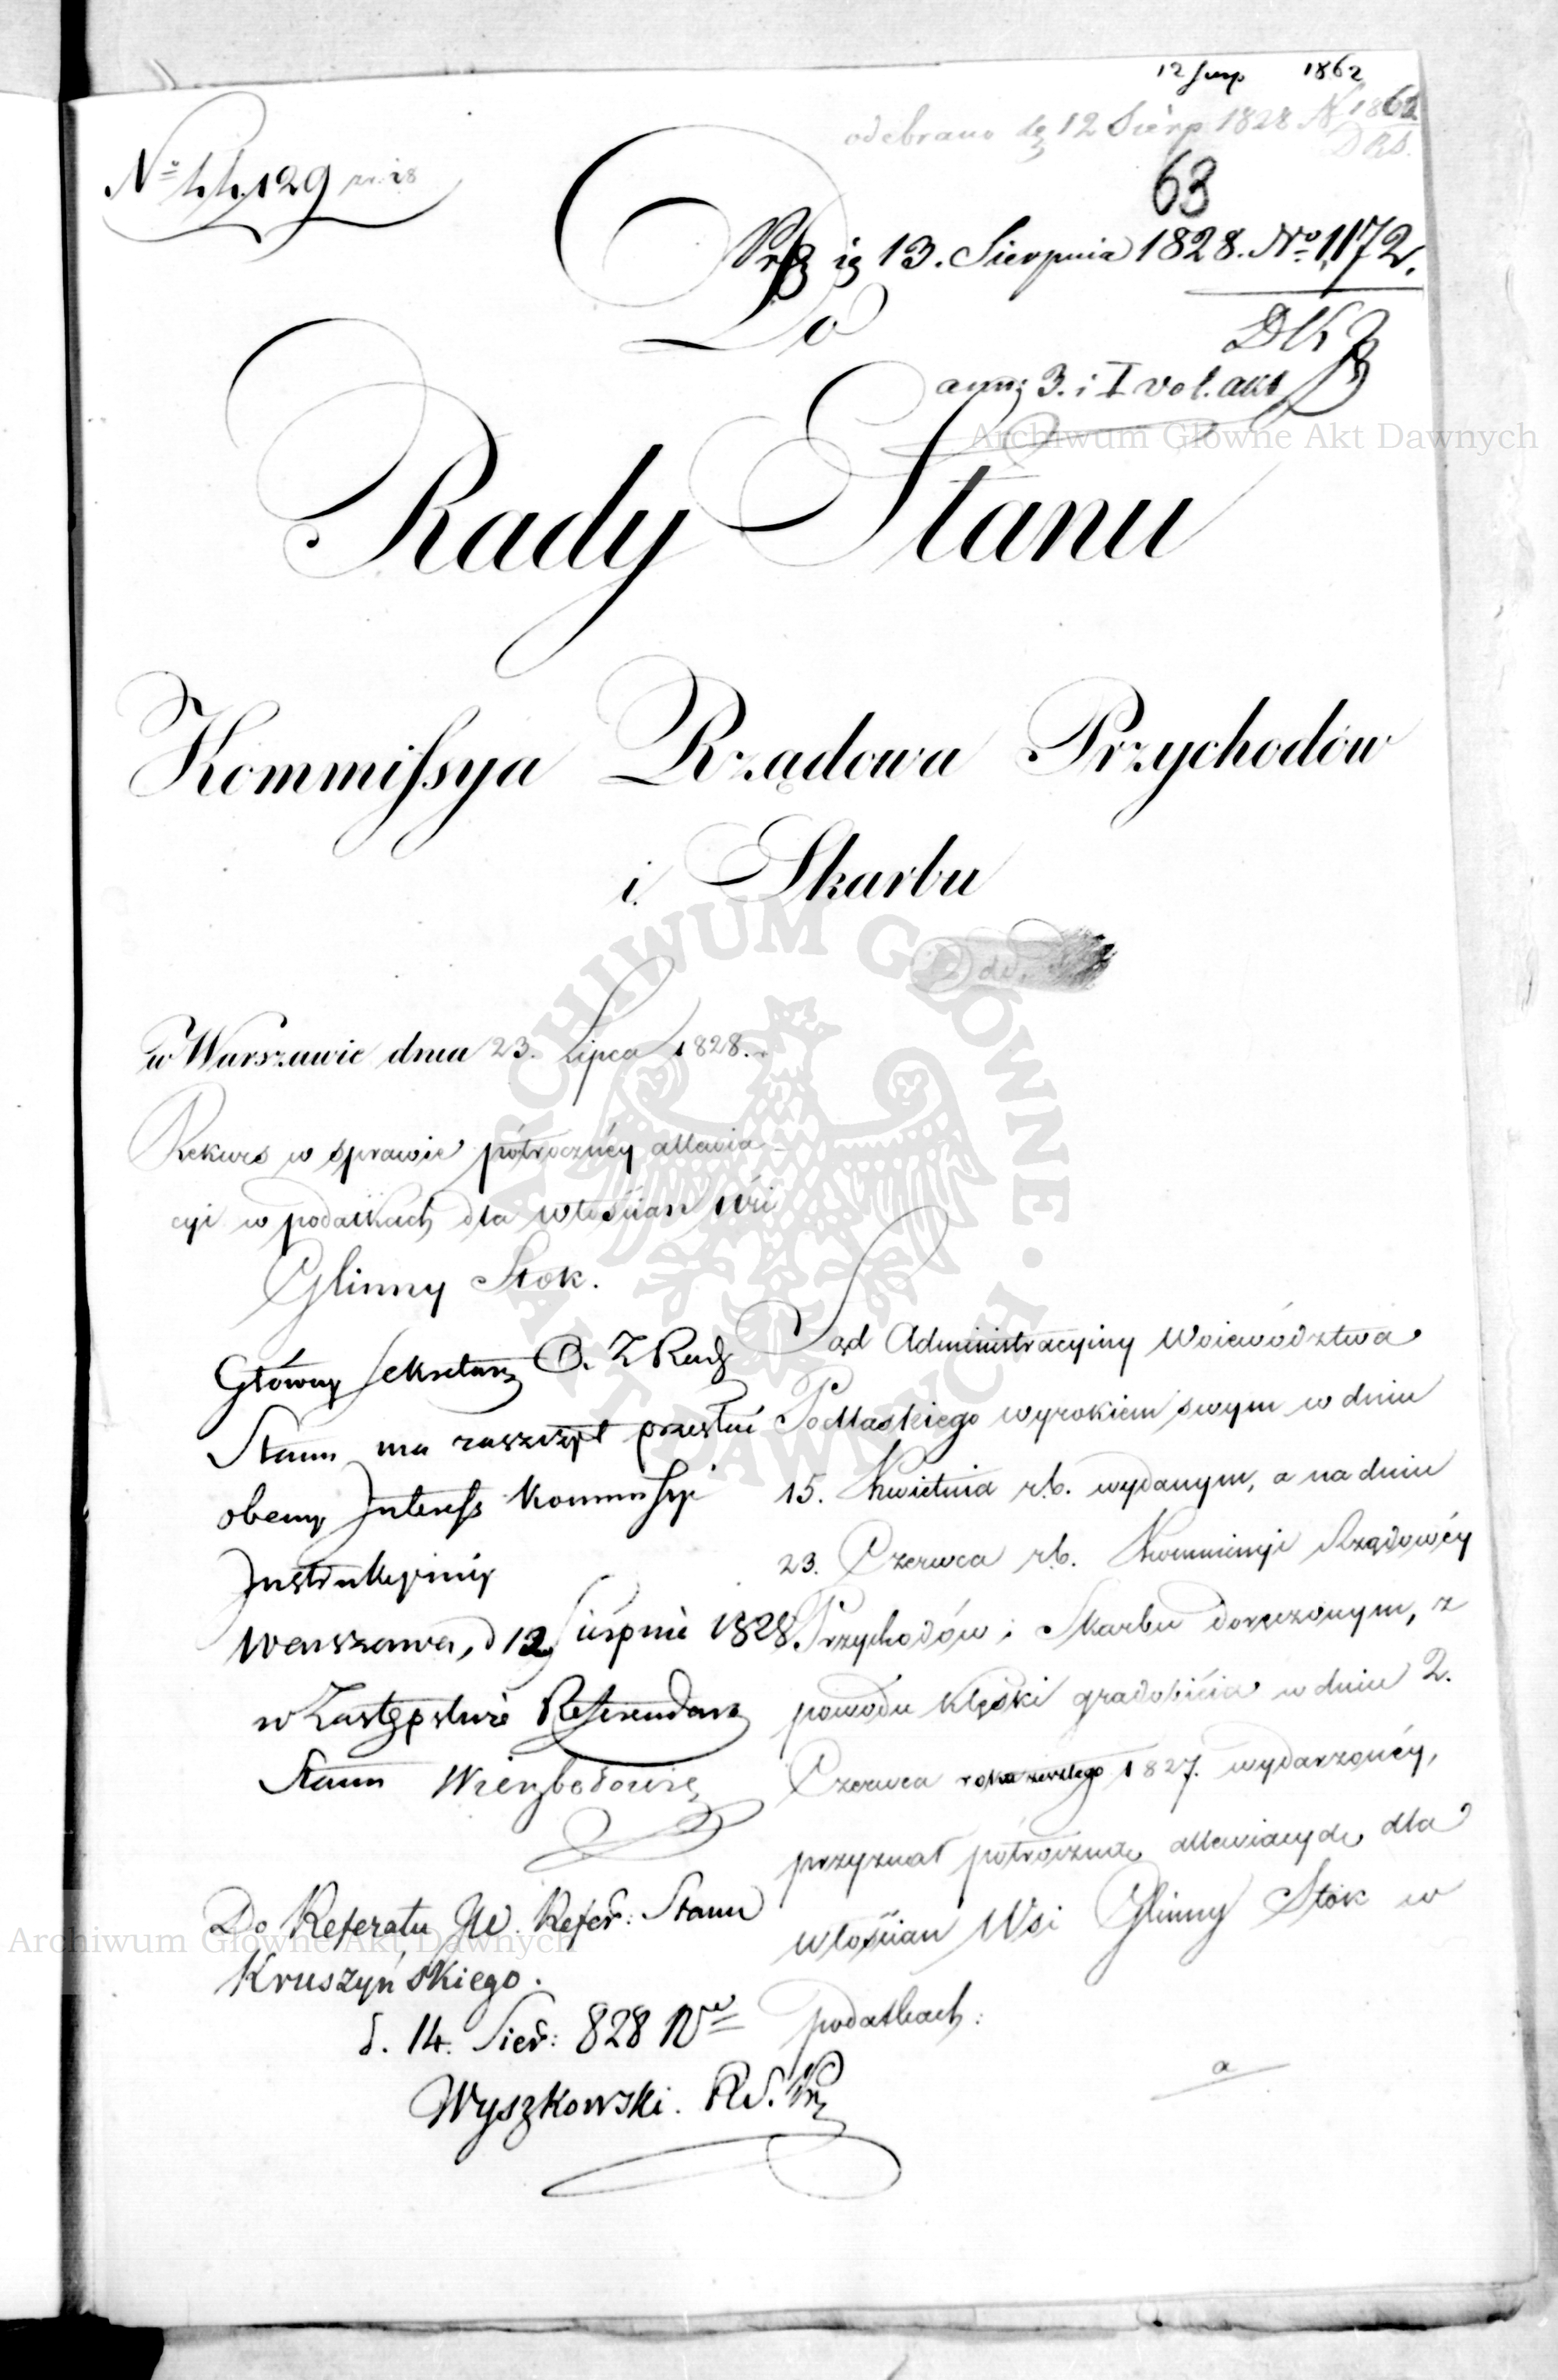 12 Sierp 1862
odebrano dz 12 Sierp 1828 N 1862
DRS.
63
Nº 44129
Prz ig 13. Sierpnia 1828. Nº 1172.
Do
DK
ann: 3. i I vol. akt
Rady Stanu
Kommissya Rządowa Przychodów
i Skarbu
w Warszawie dnia 23. Lipca 1828.
Rekurs w sprawie półrocznéy allevia-
cyi w podatkach dla włościan wsi
Glinny Stok.
Główny Sekretarz O. Z Rady
Stanu ma zaszczyt przesłać
obecny Interess Kommissyi
Instrukcyiney
Warszawa, d 12 Sierpnia 1828.
w Zastępstwie Referendarz
Stanu Wierzbołowicz
Do Referatu JW. Refer: Stanu
Kruszyńskiego.
d. 14. Sier: 828
Wyszkowski. RS.
Sąd Administracyiny Woiewództwa
Podlaskiego wyrokiem swym w dniu
15. Kwietnia r.b. wydanym, a na dniu
23. Czerwca r.b. Kommissyi Rządowéy
Przychodów i Skarbu doręczonym, z
powodu klęski gradobicia w dniu 2.
Czerwca roku zeszłego 1827. wydarzonéy,
przyznał półroczną alleviacyą dla
włościan Wsi Glinny Stok w
podatkach:
a
Archiwum Główne Akt Dawnych
ARCHIWUM GŁÓWNE AKT DAWNYCH
Archiwum Główne Akt Dawnych